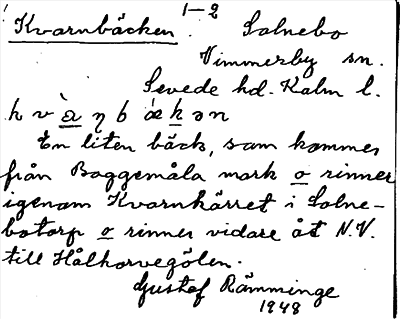 1-2
Kvarnbäcken. Solnebo
Vimmerby sn.
Sevede hd. Kalm l.
h v à ŋ b ǽ k ə n
En liten bäck, som kommer
från Baggemåla mark o rinner
igenom Kvarnkärret i Solne-
botorp o rinner vidare åt N.V.
till Hålkorvegölen.
Gustaf Rämminge
1948